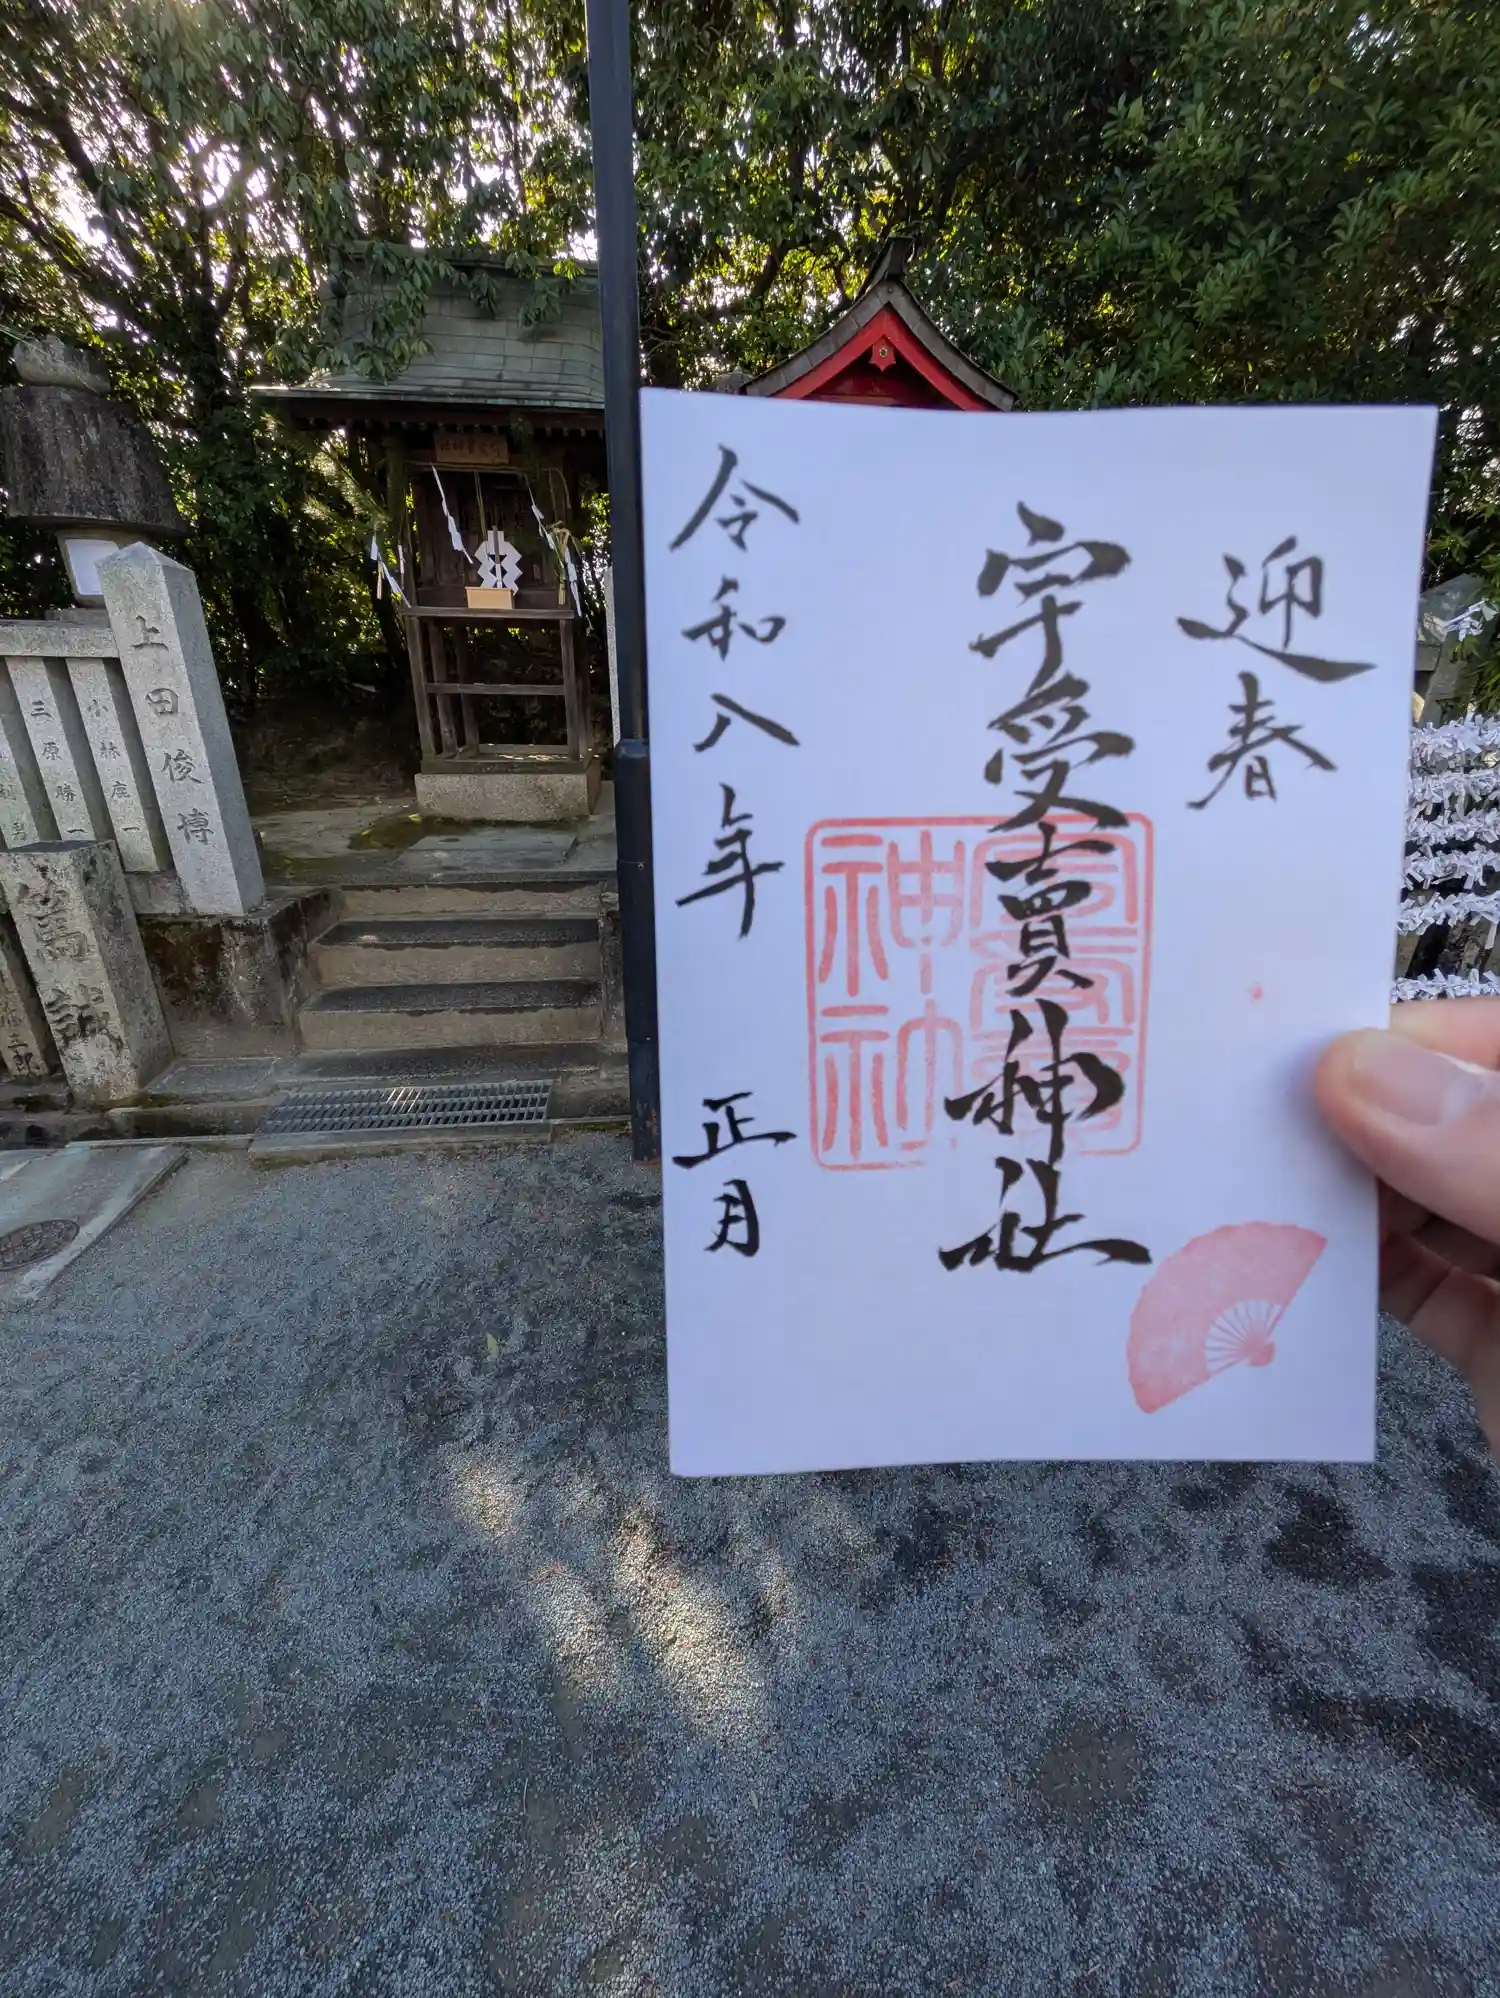 迎春
宇受賣神社
令和八年 正月
神社
上田俊博
小林庄一
三原勝一
篤誠